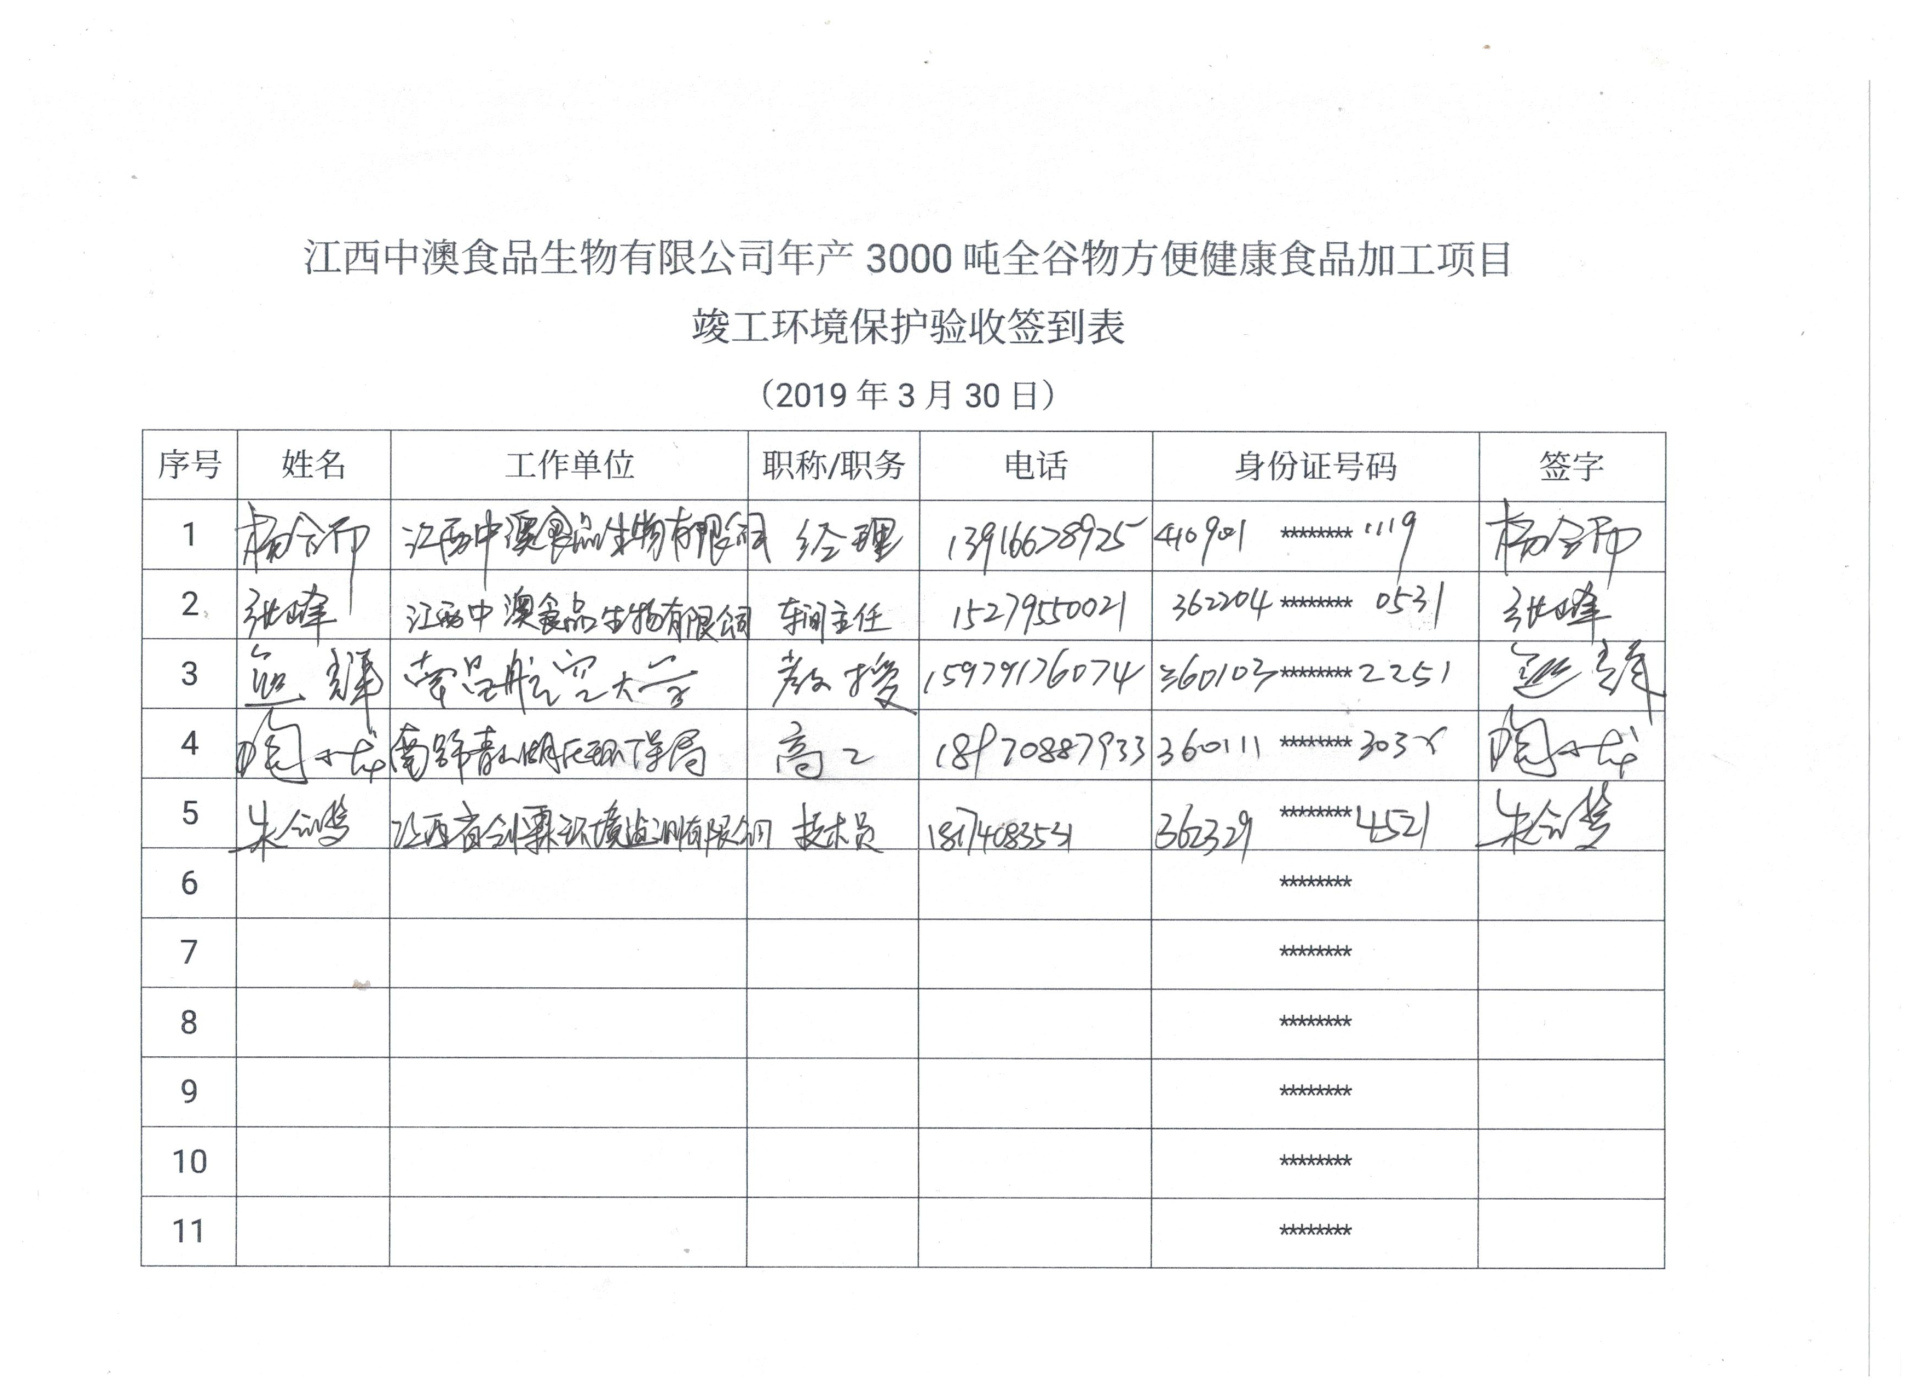 江西中澳食品生物有限公司年产 3000 吨全谷物方便健康食品加工项目
竣工环境保护验收签到表
（2019 年 3 月 30 日）
序号 姓名 工作单位 职称/职务 电话 身份证号码 签字
1 江西中澳食品生物有限公司 经理 13916628925 410901 ******** 1119
2 张峰 江西中澳食品生物有限公司 车间主任 15279550021 362204 ******** 0531 张峰
3 南昌航空大学 教授 15979176074 360103 ******** 2251
4 陶 南昌市青山湖区环保局 高工 18970887933 360111 ******** 303X 陶
5 朱 江西省创霖环境监测有限公司 技术员 18174083531 362329 ******** 4521 朱
6 ********
7 ********
8 ********
9 ********
10 ********
11 ********